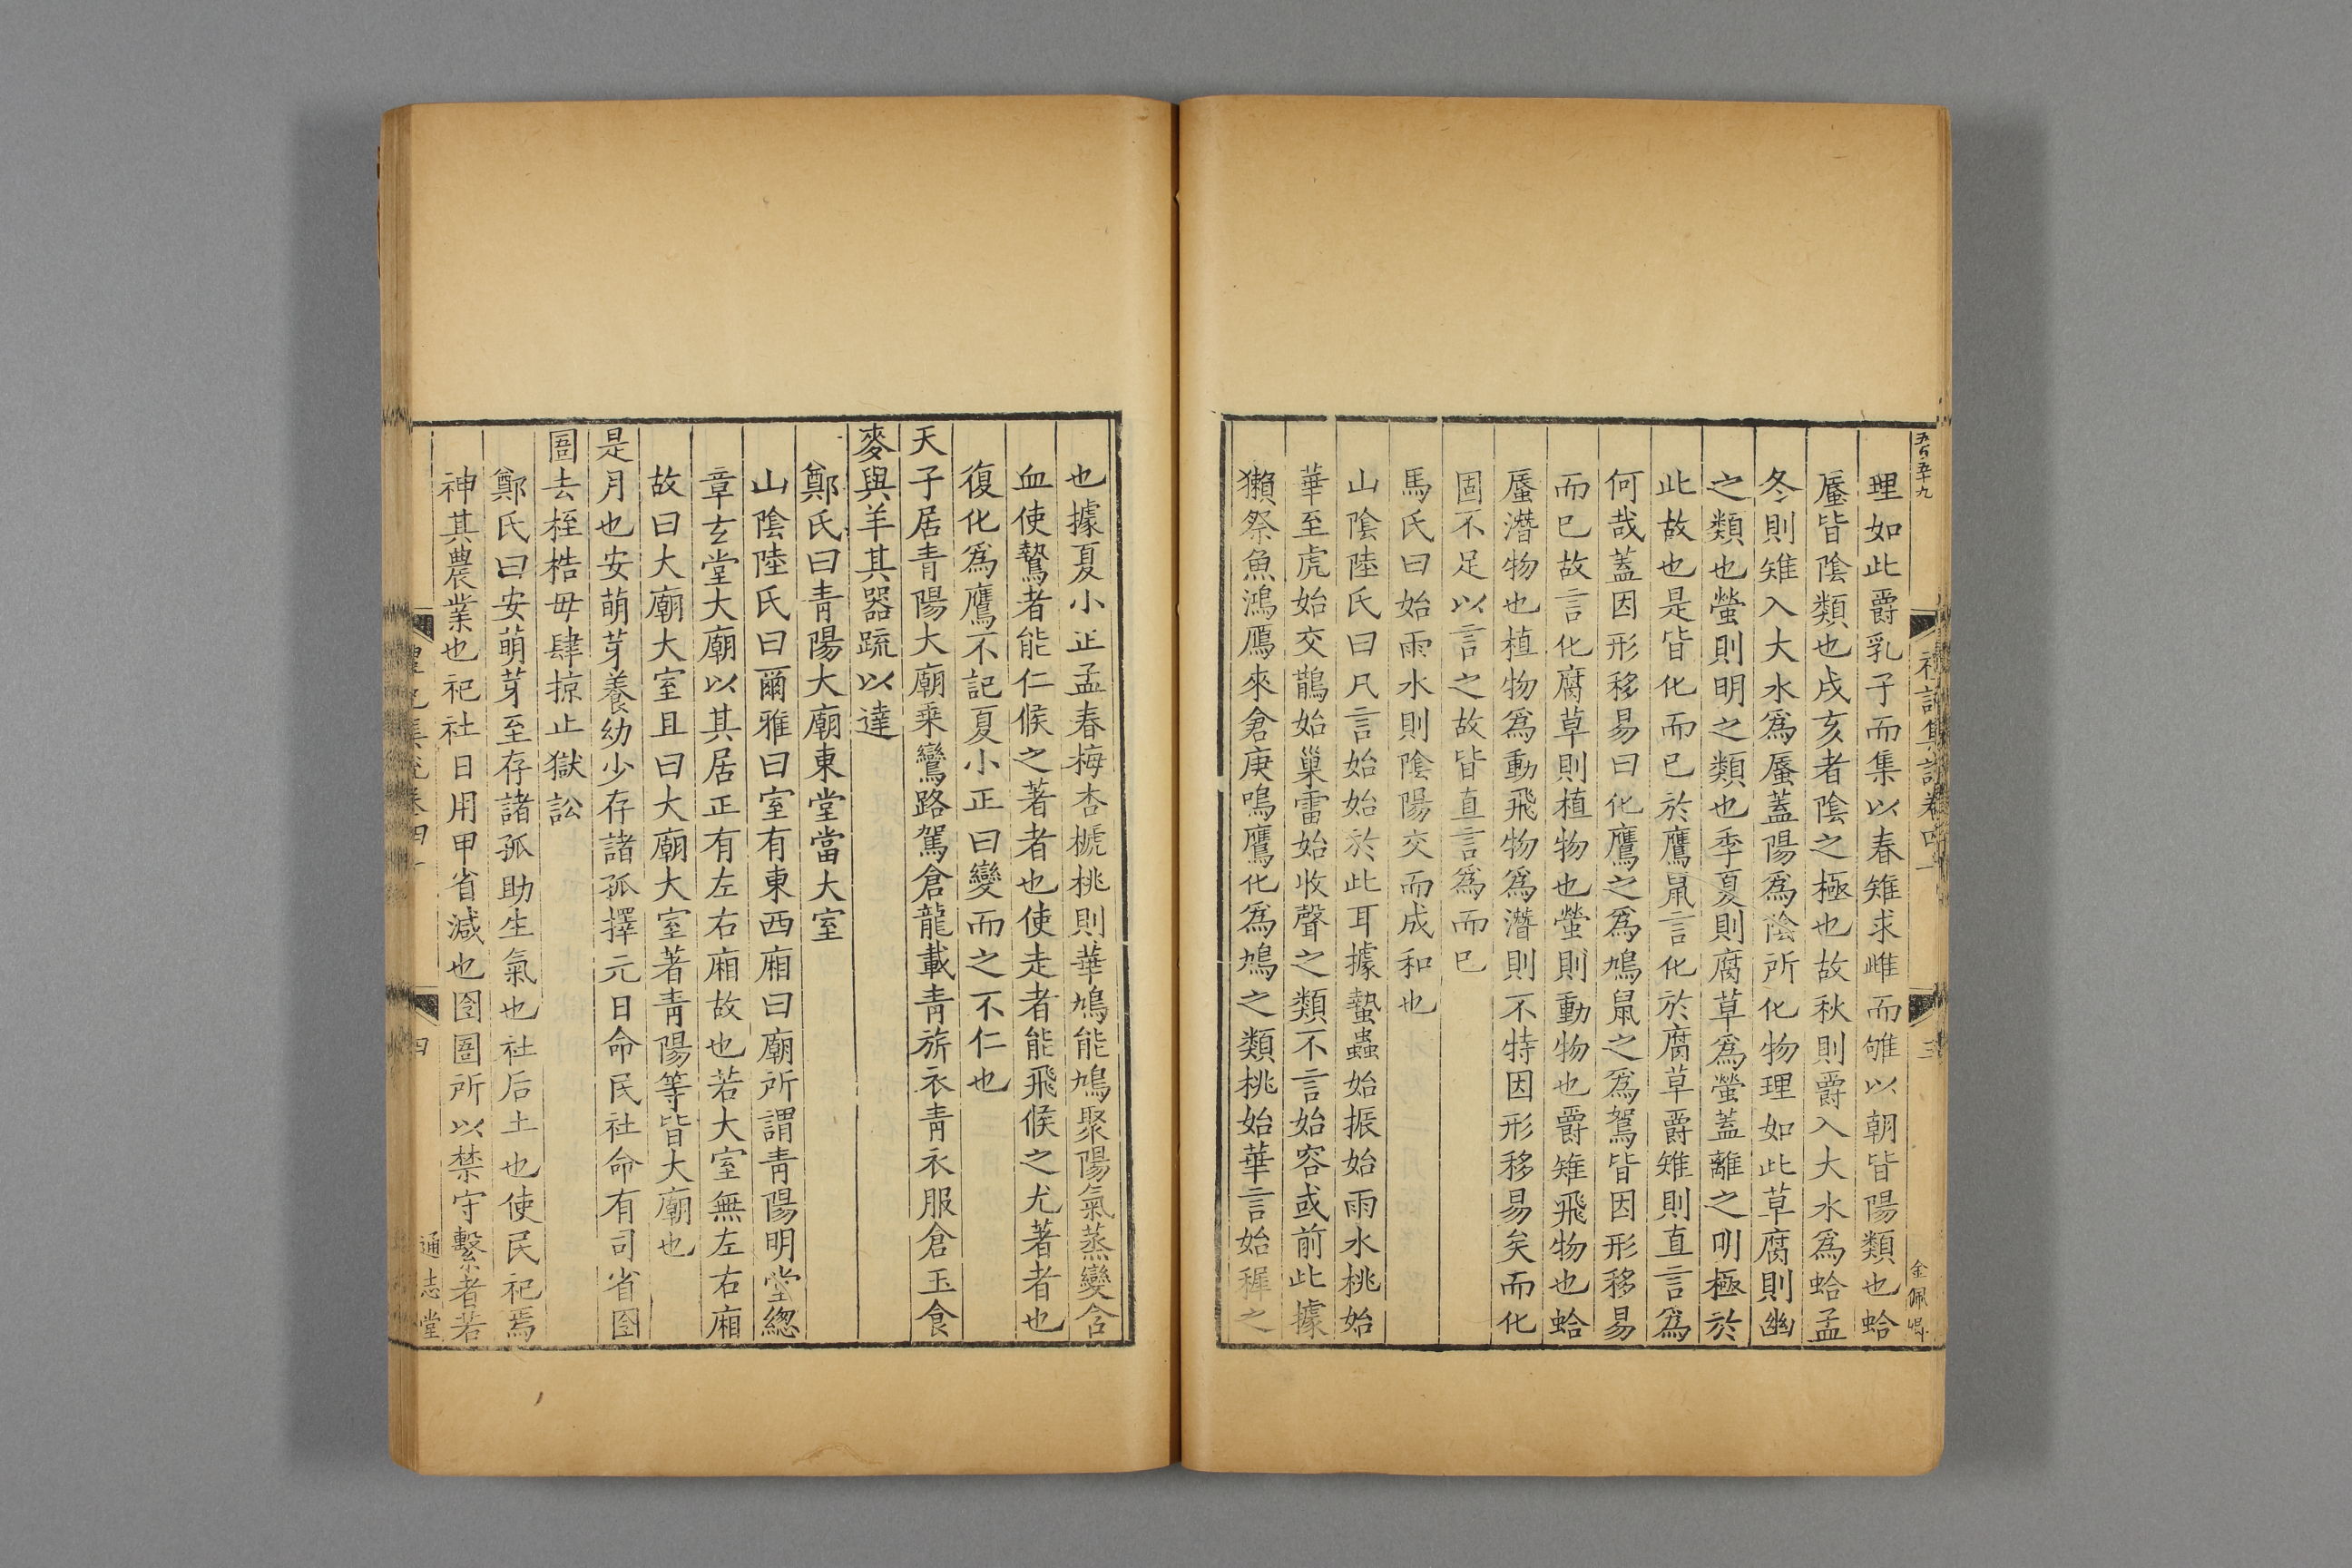 五百五十九
禮記集說卷四十一
三
金佩
理如此爵乳子而集以春雉求雌而雊以朝皆陽類也蛤
蜃皆陰類也戌亥者陰之極也故秋則爵入大水爲蛤孟
冬則雉入大水爲蜃蓋陽爲陰所化物理如此草腐則幽
之類也螢則明之類也季夏則腐草爲螢蓋離之明極於
此故也是皆化而已於鷹鼠言化於腐草爵雉則直言爲
何哉蓋因形移易曰化鷹之爲鳩鼠之爲鴽皆因形移易
而已故言化腐草則植物也螢則動物也爵雉飛物也蛤
蜃潛物也植物爲動飛物爲潛則不特因形移易矣而化
固不足以言之故皆直言爲而已
馬氏曰始雨水則陰陽交而成和也
山陰陸氏曰凡言始始於此耳據蟄蟲始振始雨水桃始
華至虎始交鵲始巢雷始收聲之類不言始容或前此據
獺祭魚鴻鴈來倉庚鳴鷹化爲鳩之類桃始華言始穉之
也據夏小正孟春梅杏榹桃則華鳩能鳩聚陽氣蒸變含
血使鷙者能仁候之著者也使走者能飛候之尤著者也
復化爲鷹不記夏小正曰變而之不仁也
天子居青陽大廟乘鸞路駕倉龍載青旂衣青衣服倉玉食
麥與羊其器疏以達
鄭氏曰青陽大廟東堂當大室
山陰陸氏曰爾雅曰室有東西廂曰廟所謂青陽明堂緫
章玄堂大廟以其居正有左右廂故也若大室無左右廂
故曰大廟大室且曰大廟大室著青陽等皆大廟也
是月也安萌芽養幼少存諸孤擇元日命民社命有司省囹
圄去桎梏毋肆掠止獄訟
鄭氏曰安萌芽至存諸孤助生氣也社后土也使民祀焉
神其農業也祀社日用甲省減也囹圄所以禁守繫者若
禮記集說卷四十一
四
通志堂